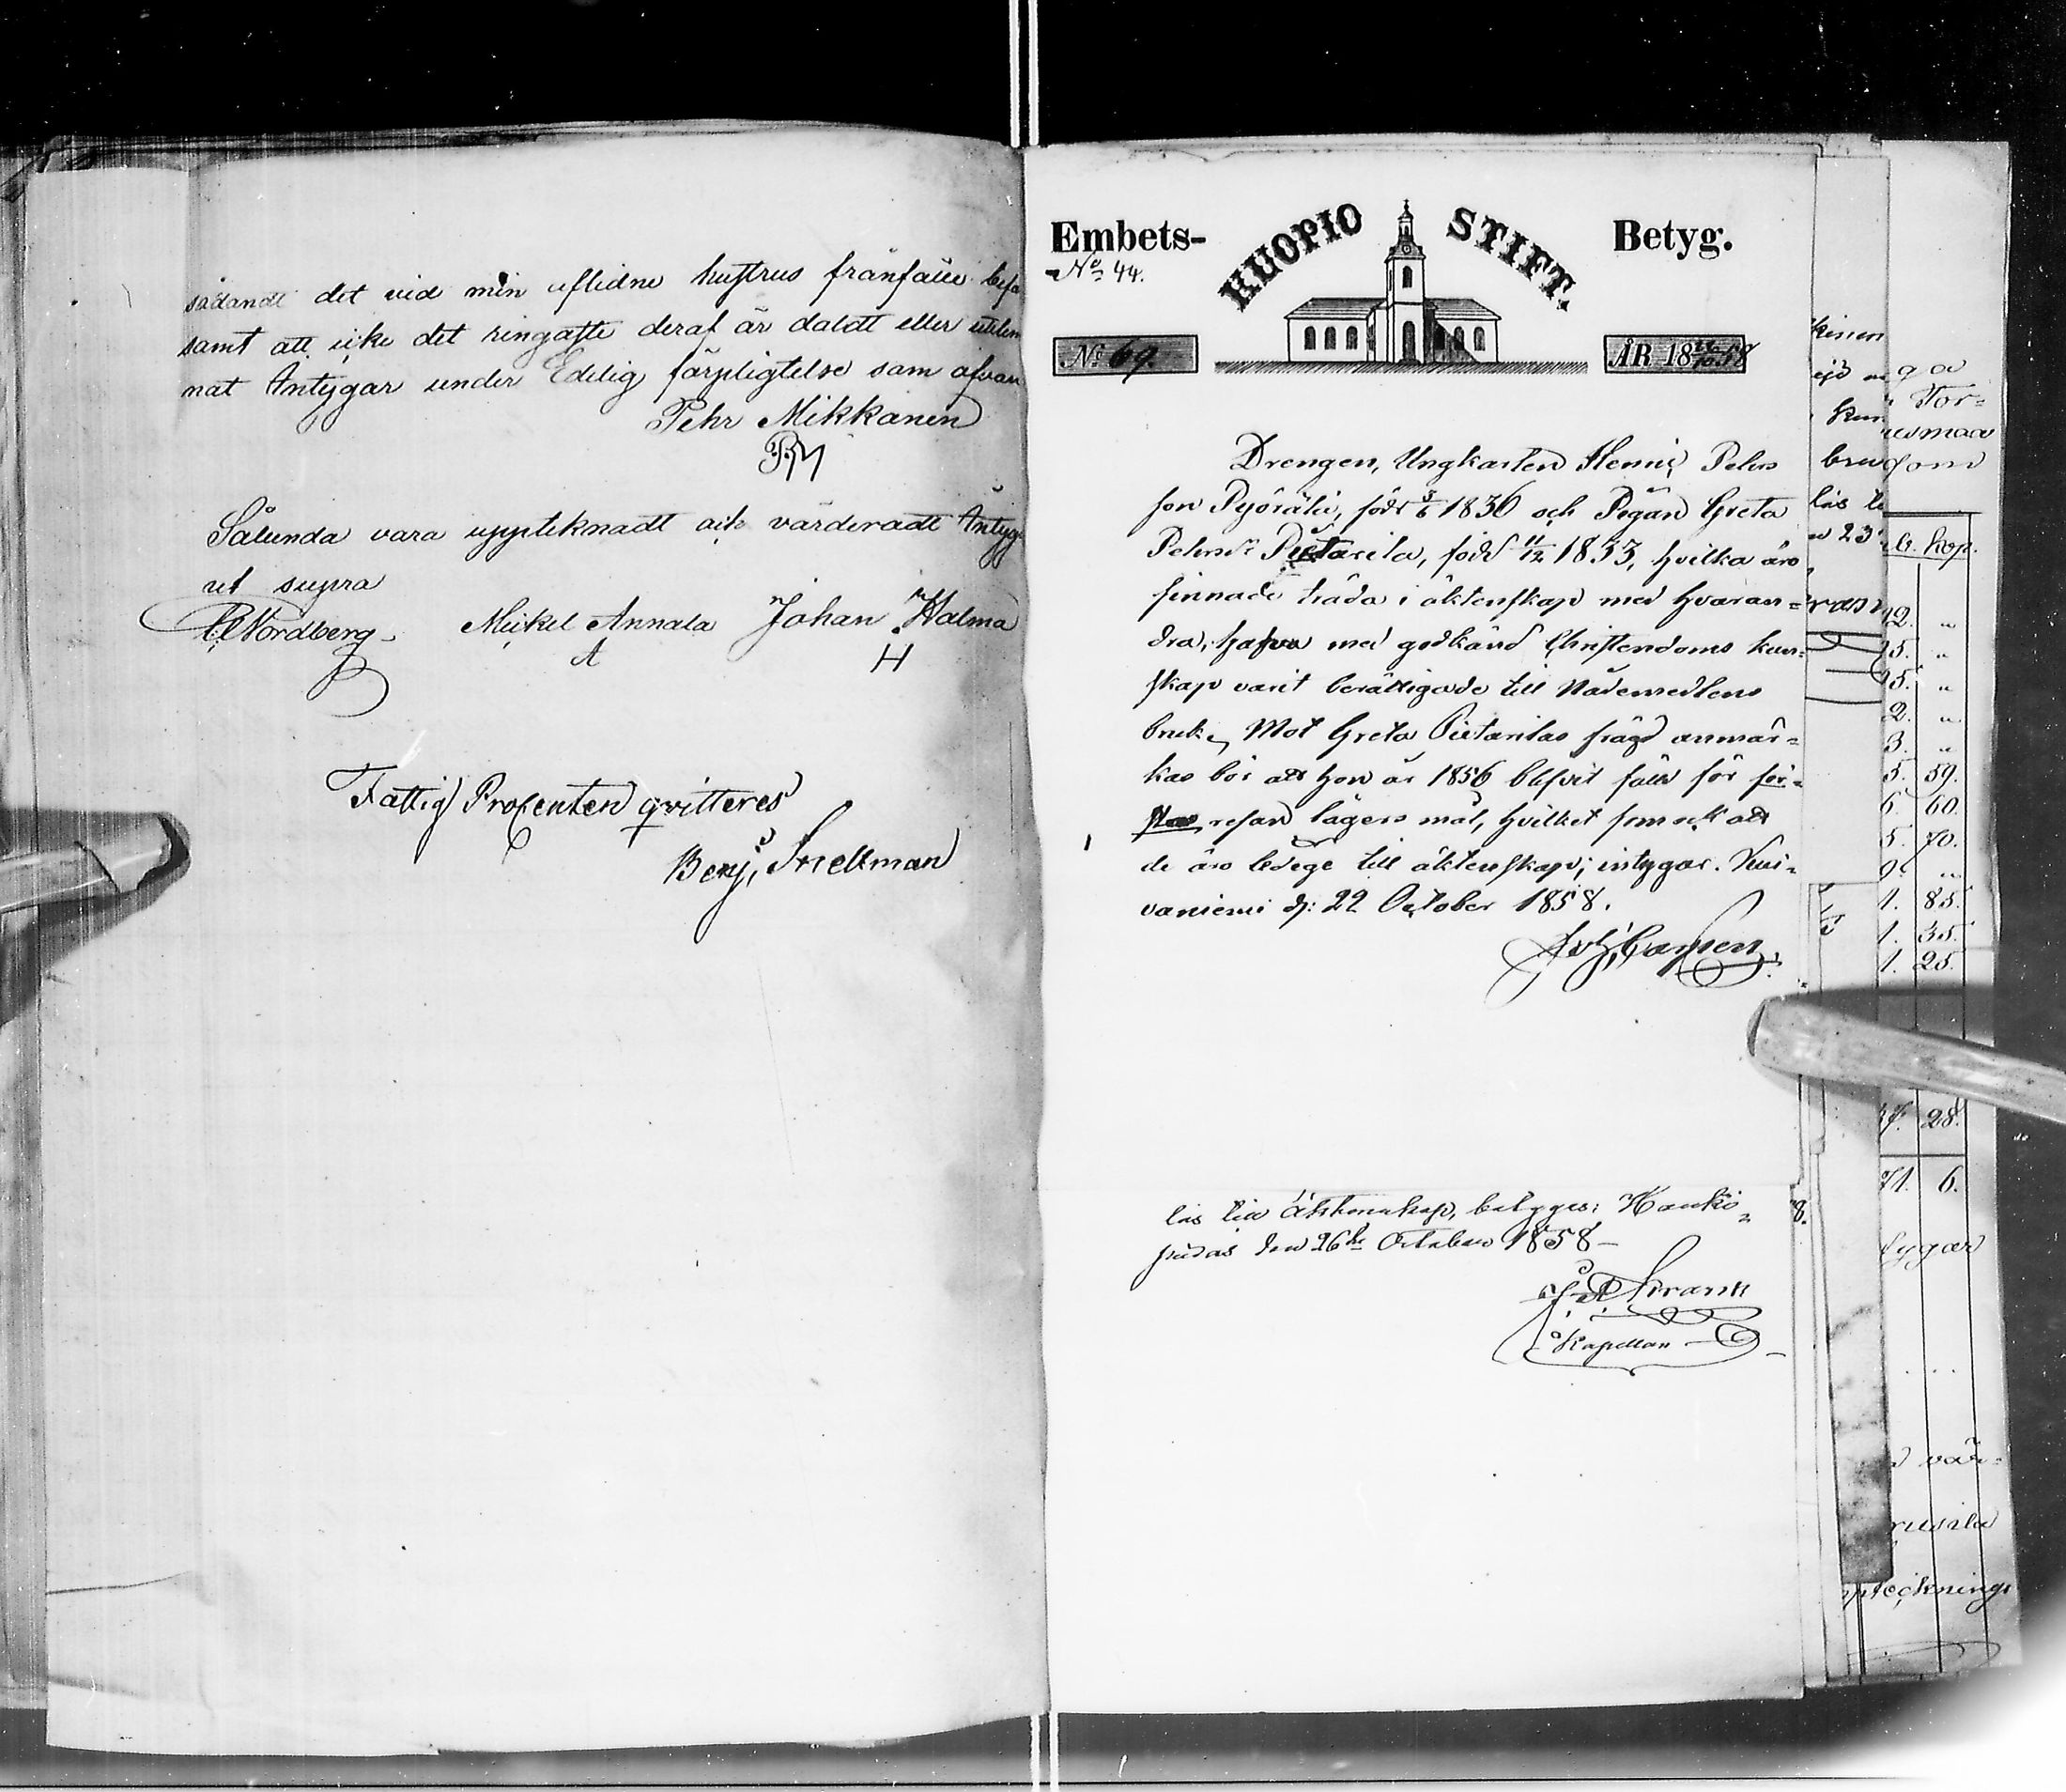 sådandt det vid min aflidne hustrus frånfälle
samt att icke det ringaste deraf är doldt eller
mat Intygar under Edelig förpligtelse som ofvan
Pehr Mikkanen
PM
Sålunda vara uppteknadt och värderadt Intyg
ut supra
Nordberg
Mickel Annala Johan Halma
A H
Fattig Procenten qvitteres
Benj. Snellman
Embets-
KUOPIO STIFT.
Betyg.
No 44.
No 69.
ÅR 18 22/10 58
Drengen, Ungkarlen Henric Pehrs
son Pyörälä, född 3/6 1836 och Pigan Greta
Pehrsdr Pietarila, född 11/12 1833, hvilka äro
sinnade träda i äktenskap med hvaran=
dra, hafva med godkänd Christendoms kun=
skap varit berättigade till Nådemedlens
bruk. Mot Greta Pietarilas frägd anmär=
kas bör att hon år 1856 blifvit fäld för för=
sta resan lägersmål, hvilket som ock att
de äro ledige till äktenskap; intygar. Kui=
vaniemi d: 22 October 1858.
las till Äktenskap, betygges; Hauki
pudas den 26te October 1858
Kapellan
kinen
ga
Tor=
kun
usmaa
som
las
23
b. kop.
2. "
5. "
5. "
2. "
3. "
5. 59.
6. 60.
5. 70.
9. "
1. 85.
1. 35.
1. 25.
28.
71. 6.
8.
tygar
vär=
rusila
ptecknings